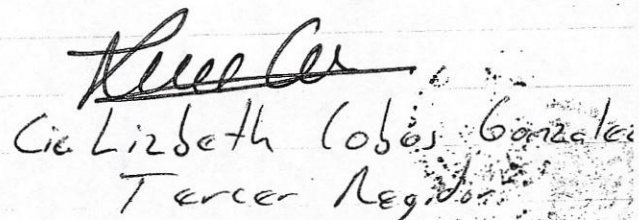 Cic Lizbeth Cobos Gonzalez
Tercer Regidor